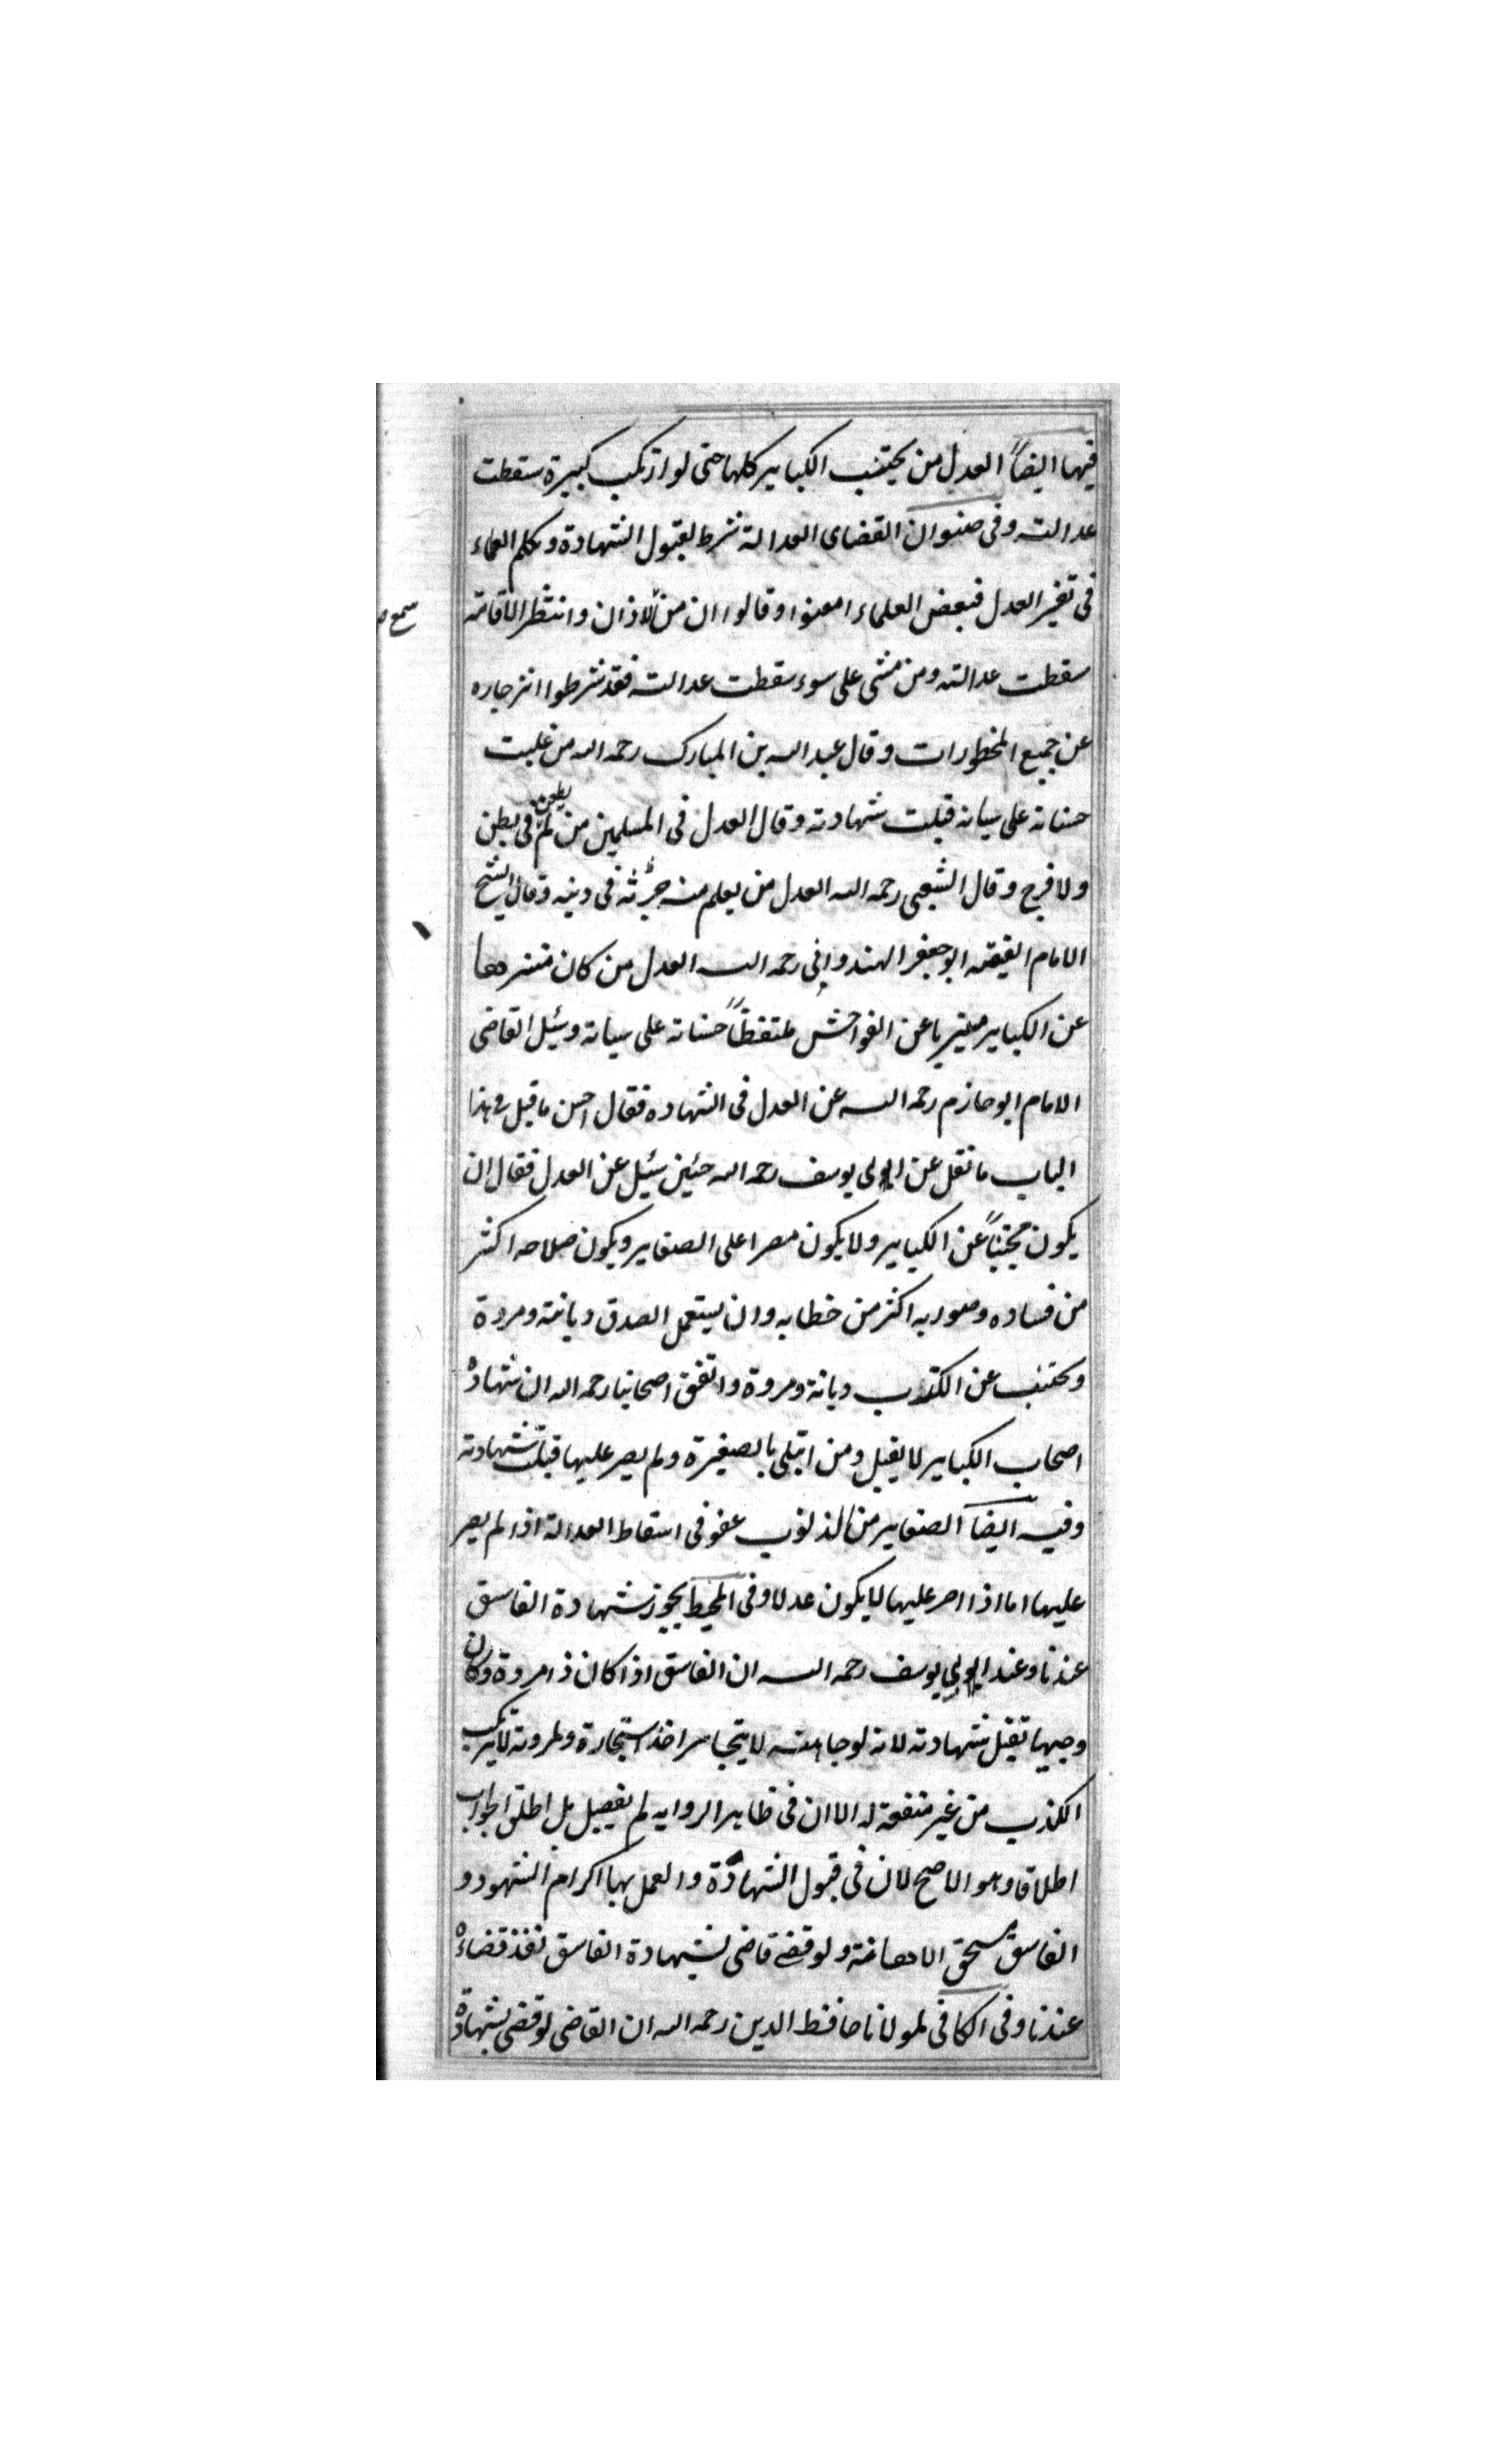 فيها ايضاً العدل من يجتنب الكباير كلها حتى لو ارتكب كبيرة سقطت
عدالته وفى صنوان القضاى العدالة شرط لقبول الشهادة وتكلم العلماء
فى تفسير العدل فبعض العلماء امعنوا وقالوا ان من الاذان وانتظر الاقامته
سمع ص
سقطت عدالته ومن مشى على سوء سقطت عدالته فقد شرطوا انزجاره
عن جميع المخطورات وقال عبد الله بن المبارك رحمه الله من غلبت
حسناته على سياته قبلت شهادته وقال العدل فى المسلمين من لم يطعن فى بطن
ولا فرج وقال الشعبى رحمه الله العدل من يعلم منه فى دينه وقال الشيخ
الامام الفقيه ابو جعفر الهندوانى رحمه الله العدل من كان
عن الكباير عن الفواحش حسناته على سياته وسئيل القاضى
الامام ابو حازم رحمه الله عن العدل فى الشهاده فقال احسن ما قيل فى هذا
الباب ما نقل عن ابى يوسف رحمه الله حئين سئيل عن العدل فقال ان
يكون مجتنباً عن الكباير ولا يكون مصرا على الصغاير ويكون صلاحه اكثر
من فساده وصوابه اكثر من خطابه وان يستعمل الصدق ديانته ومروة
ويجتنب عن الكذب ديانة ومروة واتفق اصحابنا رحمه الله ان شهادة
اصحاب الكباير لا يقبل ومن ابتلى بالصغيرة ولم يصر عليها قبلت شهادته
وفيه ايضاً الصغاير من الذنوب عفو فى اسقاط العدالة اذا لم يصر
عليها اما اذا اصر عليها لا يكون عدلا وفى المحيط يجوز شهادة الفاسق
عندنا وعند ابى يوسف رحمه الله ان الفاسق اذا كان ذا مروة وكان
وجيها تقبل شهادته لانه لوجاهته لا يتجاسر استيجارة ولمروته لا يرتكب
الكذب من غير منفعة له الا ان فى ظاهر الروايه لم يفصيل بل اطلق الجواب
اطلاقا وهو الاصح لان فى قبول الشهادة والعمل بها اكرام الشهود و
الفاسق يستحق الاهانة ولو قضى قاضى بشهادة الفاسق نفذ قضاءه
عندنا وفى الكافى لمولانا حافظ الدين رحمه الله ان القاضى لو قضى بشهادة